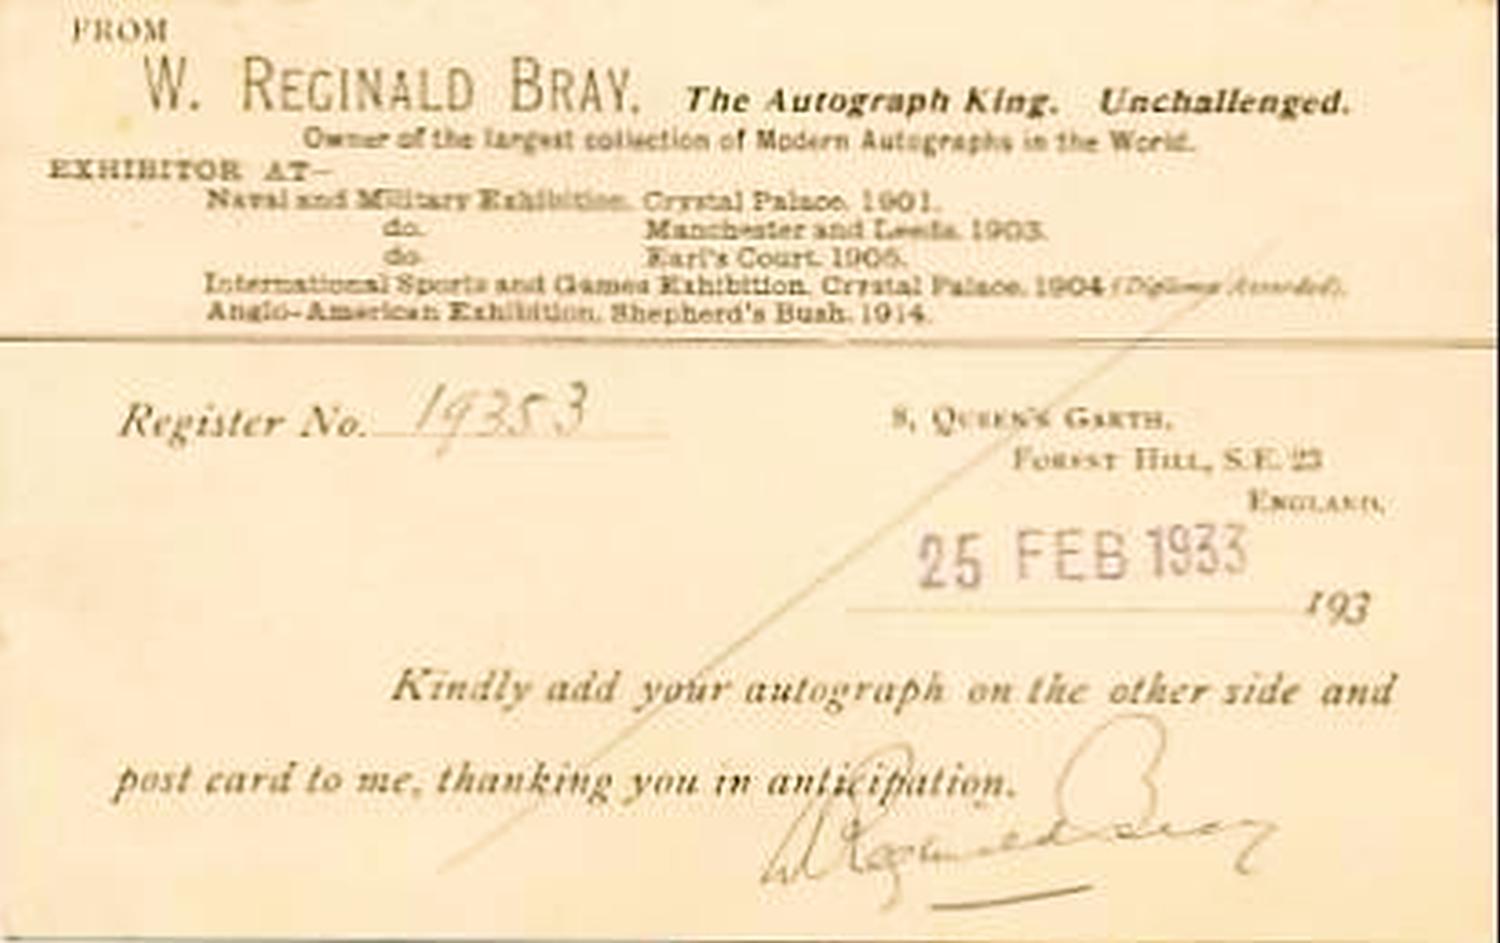 FROM
W. REGINALD BRAY, The Autograph King. Unchallenged.
Owner of the largest collection of Modern Autographs in the World.
EXHIBITOR AT—
Naval and Military Exhibition, Crystal Palace, 1901.
do. Manchester and Leeds, 1903.
do. Earl's Court, 1905.
International Sports and Games Exhibition, Crystal Palace, 1904 (Diploma Awarded).
Anglo-American Exhibition, Shepherd's Bush, 1914.
Register No. 19353
8, QUEEN'S GARTH,
FOREST HILL, S.E. 23
ENGLAND.
25 FEB 1933
193
Kindly add your autograph on the other side and
post card to me, thanking you in anticipation.
W Reginald Bray